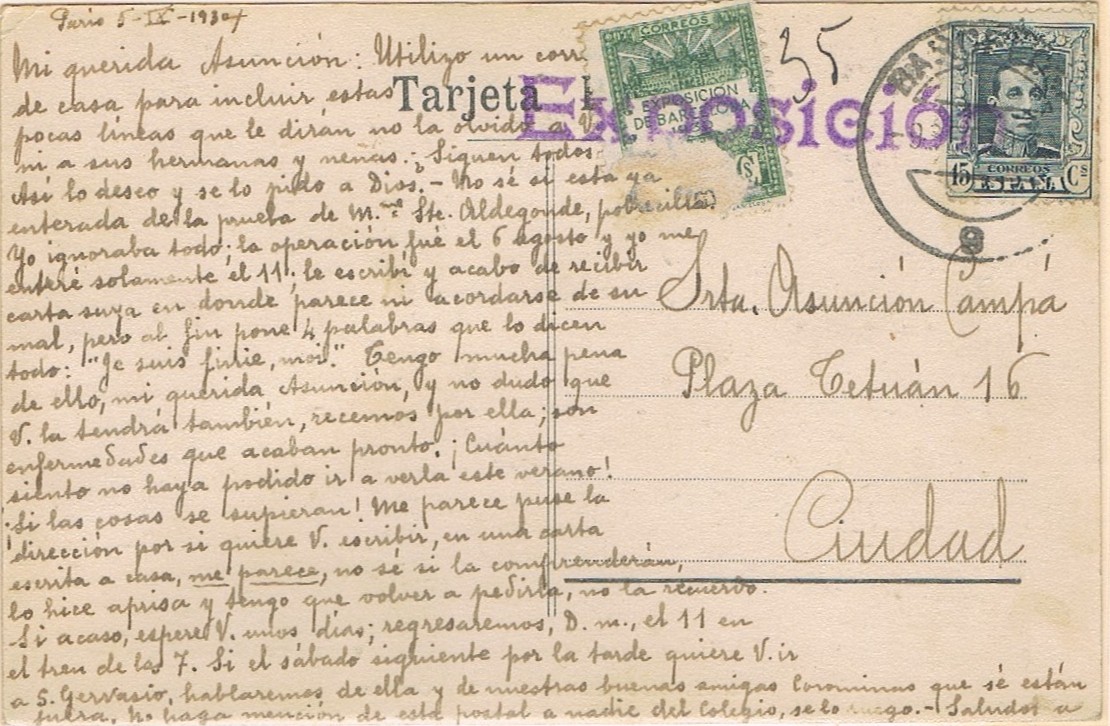 Paris 5-IX-1930
Mi querida Asunción: Utilizo un corr
de casa para incluir estas
pocas líneas que le dirán no la olvido a V.
ni a sus hermanas y nenas. ¿Siguen todos
Así lo deseo y se lo pido a Dios. - No sé si está ya
enterada de la prueba de M.me Ste. Aldegonde, pobrecilla.
Yo ignoraba todo; la operación fué el 6 agosto y yo me
enteré solamente el 11; le escribí y acabo de recibir
carta suya en donde parece ni acordarse de su
mal, pero al fin pone 4 palabras que lo dicen
todo: "Je suis finie, moi." Tengo mucha pena
de ello, mi querida Asunción, y no dudo que
V. la tendrá también, recemos por ella; son
enfermedades que acaban pronto. ¡Cuánto
siento no haya podido ir a verla este verano!
¡Si las cosas se supieran! Me parece puse la
dirección por si quiere V. escribir, en una carta
escrita a casa, me parece, no sé si la comprenderán,
lo hice aprisa y tengo que volver a pedirla, no la recuerdo.
Si acaso, espere V. unos días; regresaremos, D. m., el 11 en
el tren de las 7. Si el sábado siguiente por la tarde quiere V. ir
a S. Gervasio, hablaremos de ella y de nuestras buenas amigas Corominas que sé están
fuera. No haga mención de esta postal a nadie del Colegio, se lo ruego. - Saludos a
Tarjeta
CORREOS
EXPOSICION
DE BARCELONA
Exposición
35
BA
9
15 CORREOS Cs
ESPAÑA
Srta. Asunción Campá
Plaza Tetuán 16
Ciudad